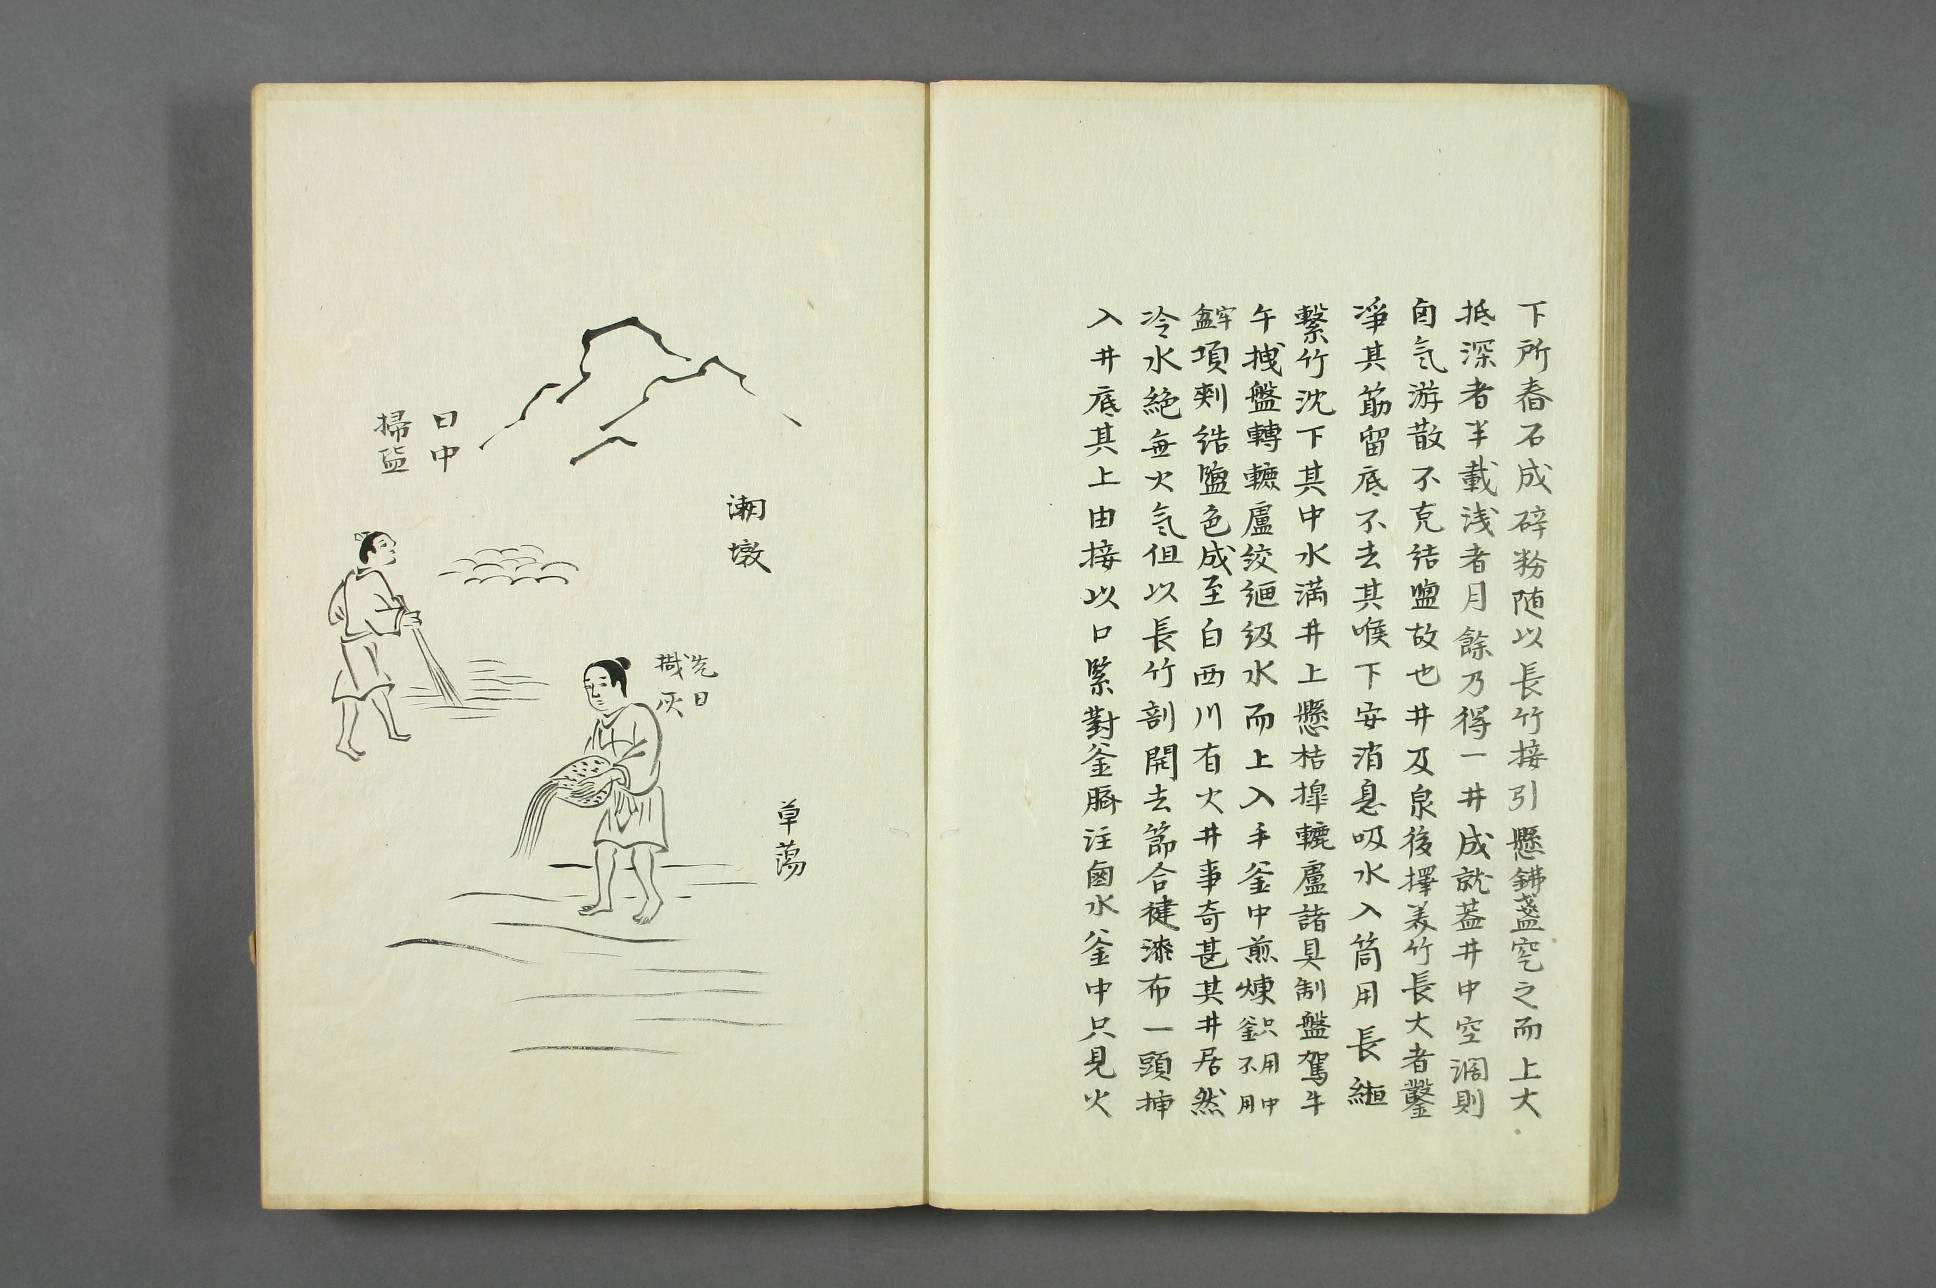 下所舂石成碎粉随以長竹接引懸鉄盞空之而上大
抵深者半載浅者月餘乃得一井成就蓋井中空濶則
卤気游散不克结盬故也井及泉後擇美竹長大者鑿
淨其筋留底不去其喉下安消息吸水入筒用長縆
繫竹沈下其中水満井上懸桔槹轆盧諸具制盤駕牛
午拽盤轉轆盧絞縆汲水而上入手釜中煎煉只用中釜不用
牢盆頃刺结盬色成至白西川有火井事奇甚其井居然
冷水絶無火気但以長竹剖開去節合褄漆布一頭挿
入井底其上由接以口緊對釜臍注鹵水釜中只見火
潮墩
日中
掃盐
洗日
揻灰
草蕩